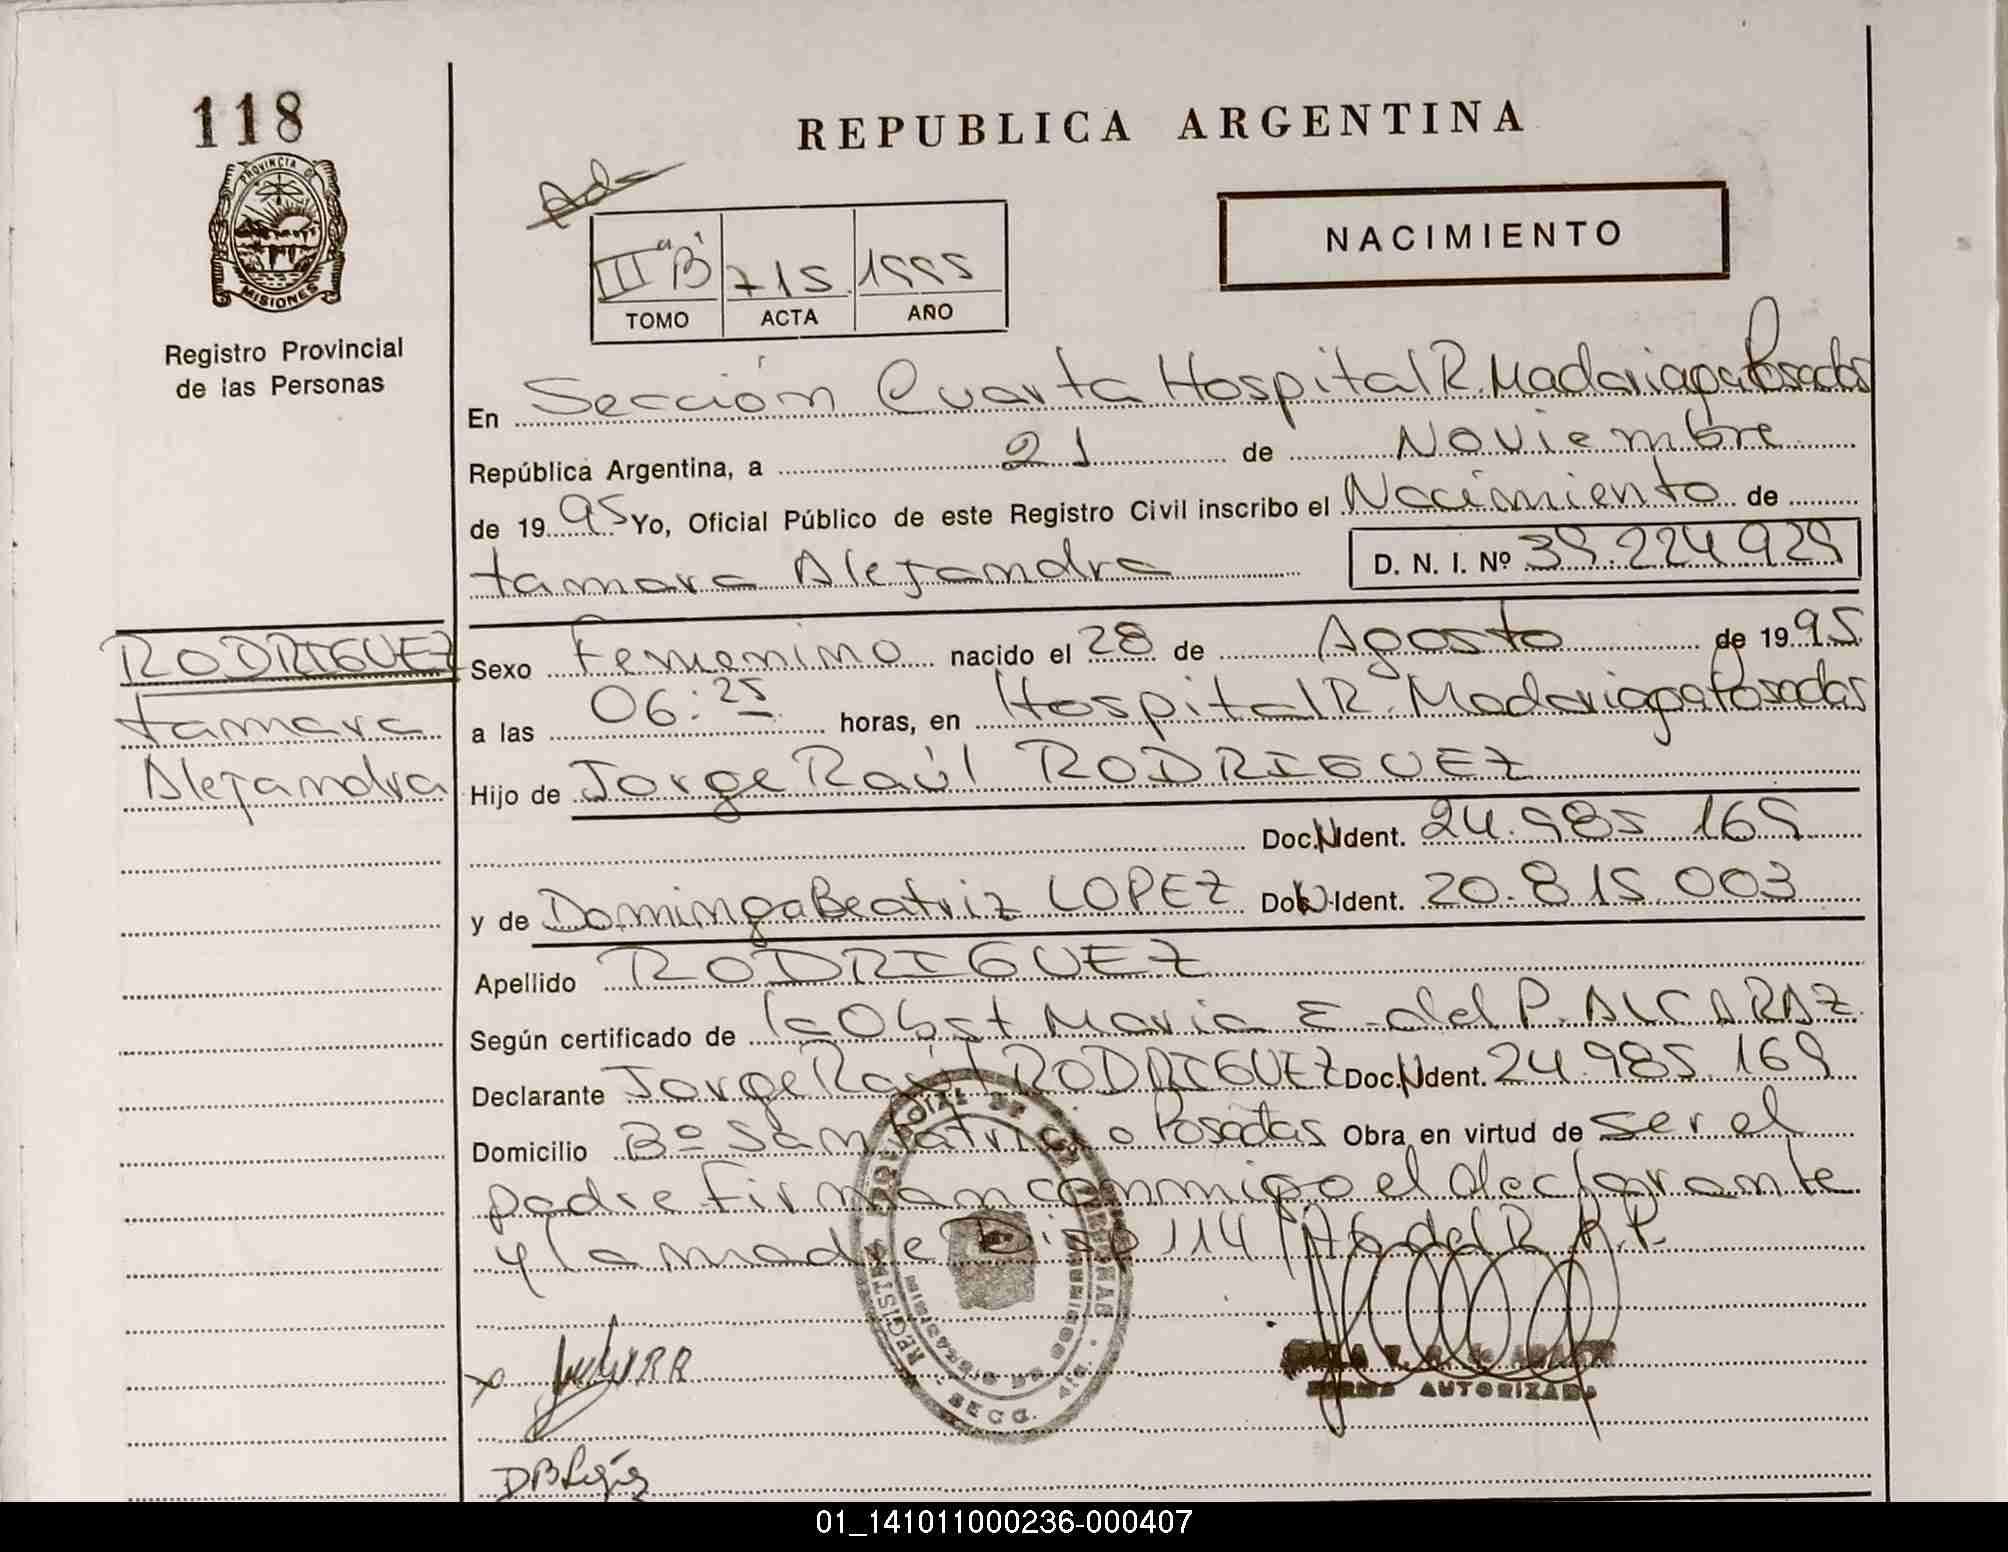 118
REPUBLICA ARGENTINA
PROVINCIA DE
MISIONES
Registro Provincial
de las Personas
III "B" 715 1995
TOMO ACTA AÑO
NACIMIENTO
En Sección Cuarta Hospital R. Madariaga Posadas
República Argentina, a 21 de Noviembre
de 1995 Yo, Oficial Público de este Registro Civil inscribo el Nacimiento de
tamara Alejandra D. N. I. Nº 39.224.929
RODRIGUEZ
tamara
Alejandra
Sexo Femenino nacido el 28 de Agosto de 1995
a las 06:25 horas, en Hospital R. Madariaga Posadas
Hijo de Jorge Raúl RODRIGUEZ
Doc. N Ident. 24.985.169
y de Dominga Beatriz LOPEZ Doc. N Ident. 20.815.003
Apellido RODRIGUEZ
Según certificado de la Obst Maria E. del P. ALCARAZ
Declarante Jorge Raúl RODRIGUEZ Doc. N Ident. 24.985.169
Domicilio Bº San Patricio Posadas Obra en virtud de ser el
padre Firman conmigo el declarante
y la madre Diso 114/ del R. P. P.
FIRMA AUTORIZADA
01_141011000236-000407